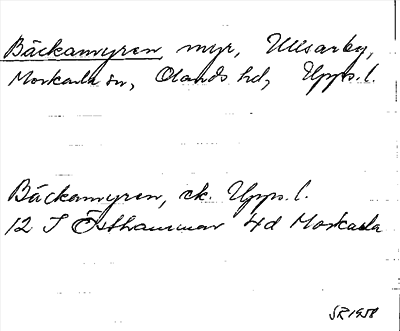 Bäckamyren, myr, Ullsarby,
Morkarla sn, Olands hd, Upps. l.
Bäckamyren, ek. Upps. l.
12 I Östhammar 4d Morkarla
SR 1958